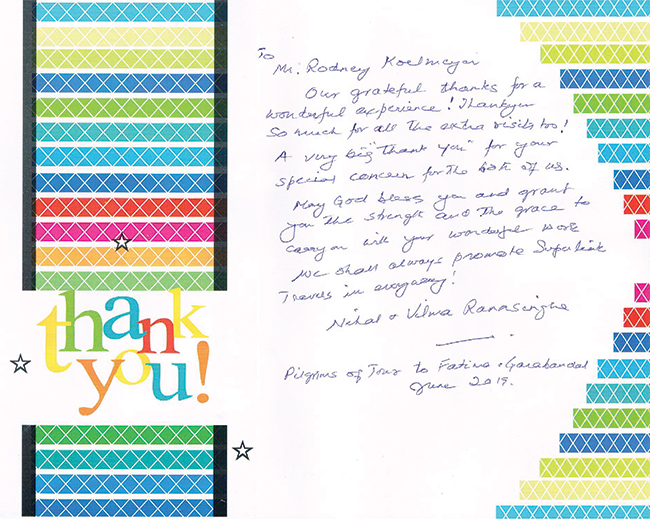 thank
you!
To
Mr. Rodney Koelmeyer
Our grateful thanks for a
wonderful experience! Thankyou
So much for all the extra visits too!
A very big "thank you" for your
special concern for the both of us.
May God bless you and grant
you the strength and the grace to
carry on with your wonderful work
We shall always promote Superlink
Travels in everyway!
Nihal & Vilma Ranasinghe
Pilgrims of Tour to Fatima & Garabandal
June 2019.